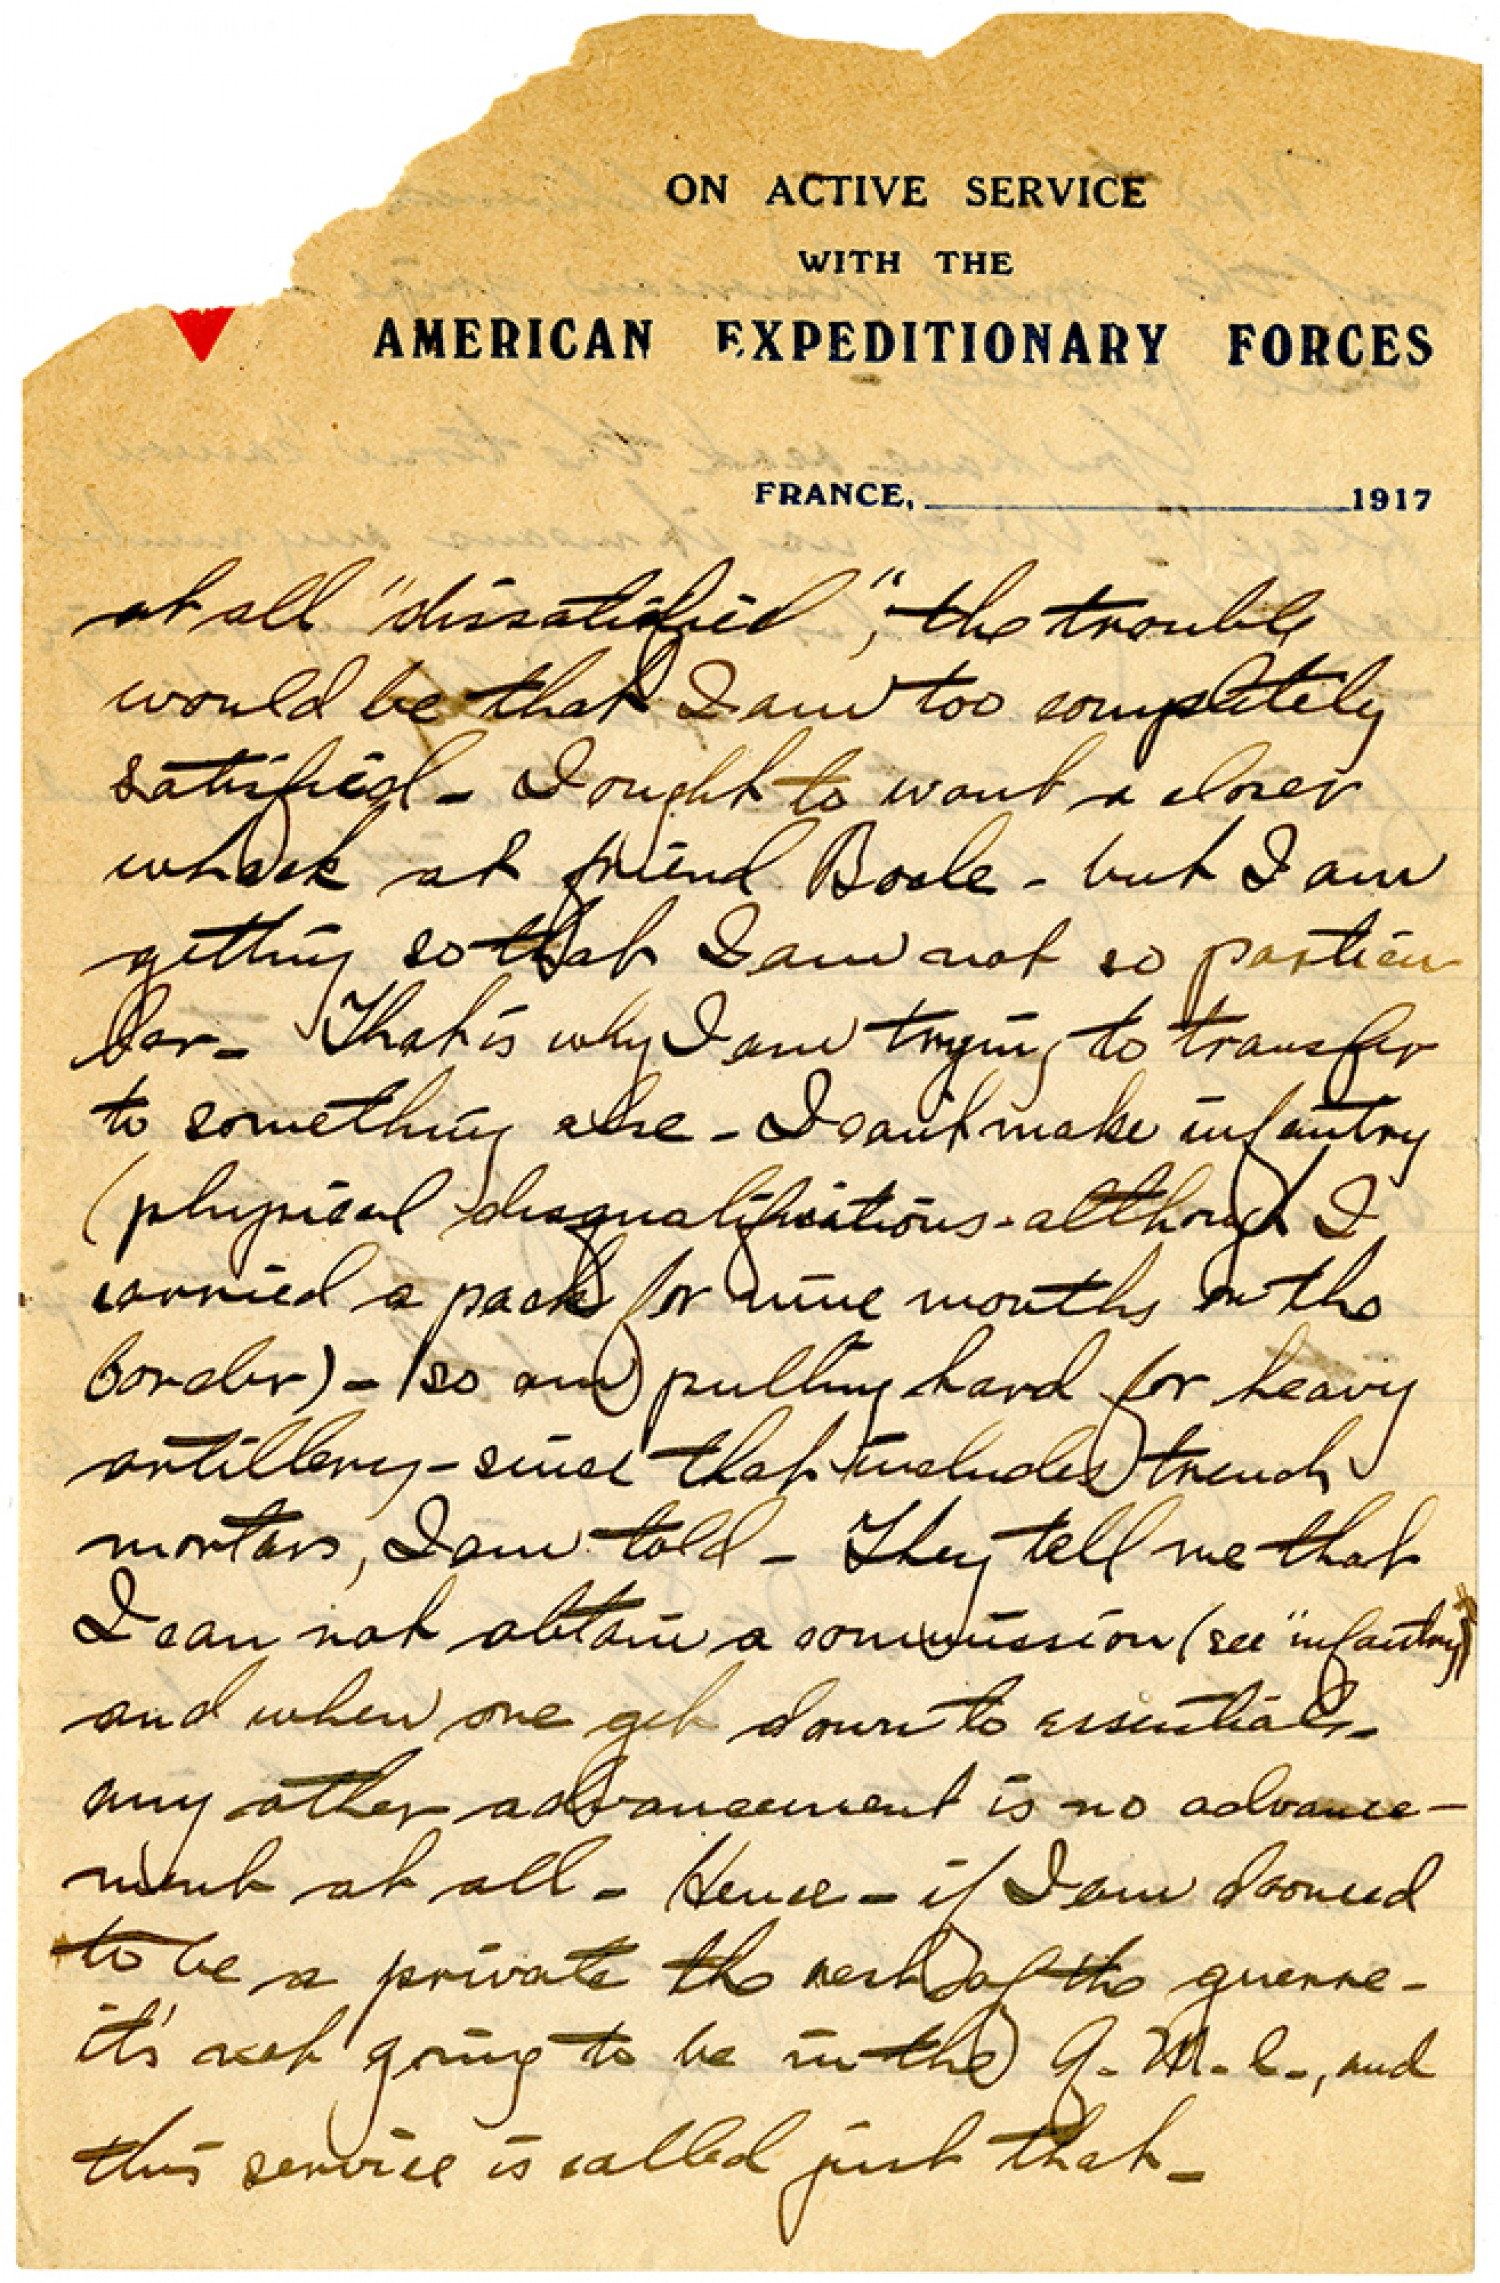 ON ACTIVE SERVICE
WITH THE
AMERICAN EXPEDITIONARY FORCES
FRANCE, 1917
at all "dissatisfied", the trouble
would be that I am too completely
satisfied - I ought to want a closer
whack at friend Bosche - but I am
getting so that I am not so particu-
lar - That is why I am trying to transfer
to something else - I can't make infantry
(physical disqualifications - although I
carried a pack for nine months on the
border) - so am pulling hard for heavy
artillery - since that includes trench
mortars, I am told - They tell me that
I can not obtain a commission (see "infantry")
and when one gets down to essentials -
any other advancement is no advance-
ment at all - Hence - if I am doomed
to be a private the rest of the guerre -
it's not going to be in the Q. M. C., and
this service is called just that -